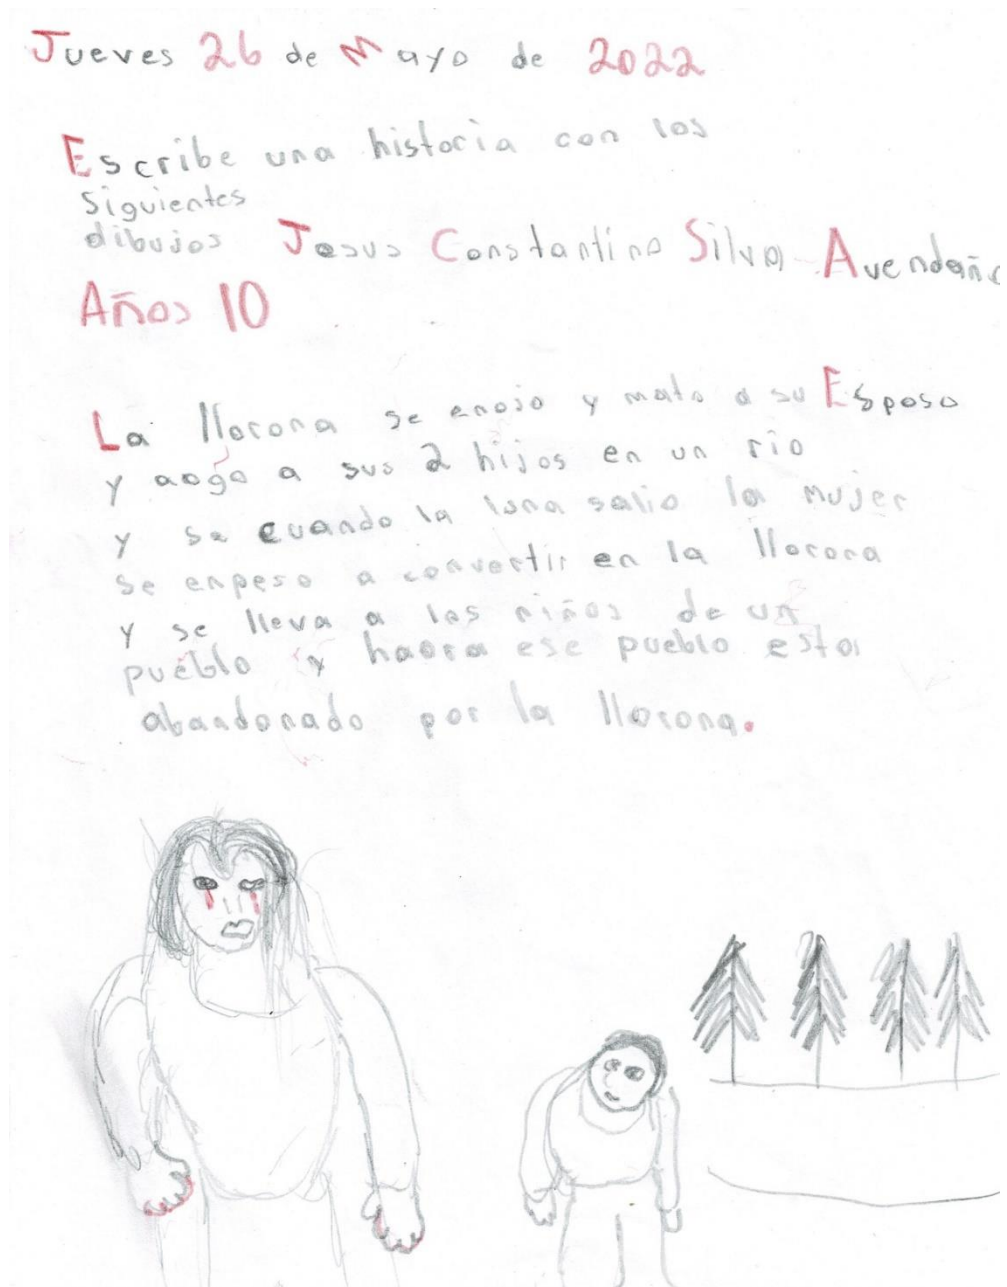 Jueves 26 de Mayo de 2022
Escribe una historia con los
siguientes
dibujos Jesus Constantino Silva Avendaño
Años 10
La llorona se enojo y mato a su Esposo
y aogo a sus 2 hijos en un rio
y se cuando la luna salio la mujer
se enpeso a convertir en la llorona
y se lleva a los niños de un
pueblo y haora ese pueblo esta
abandonado por la llorona.